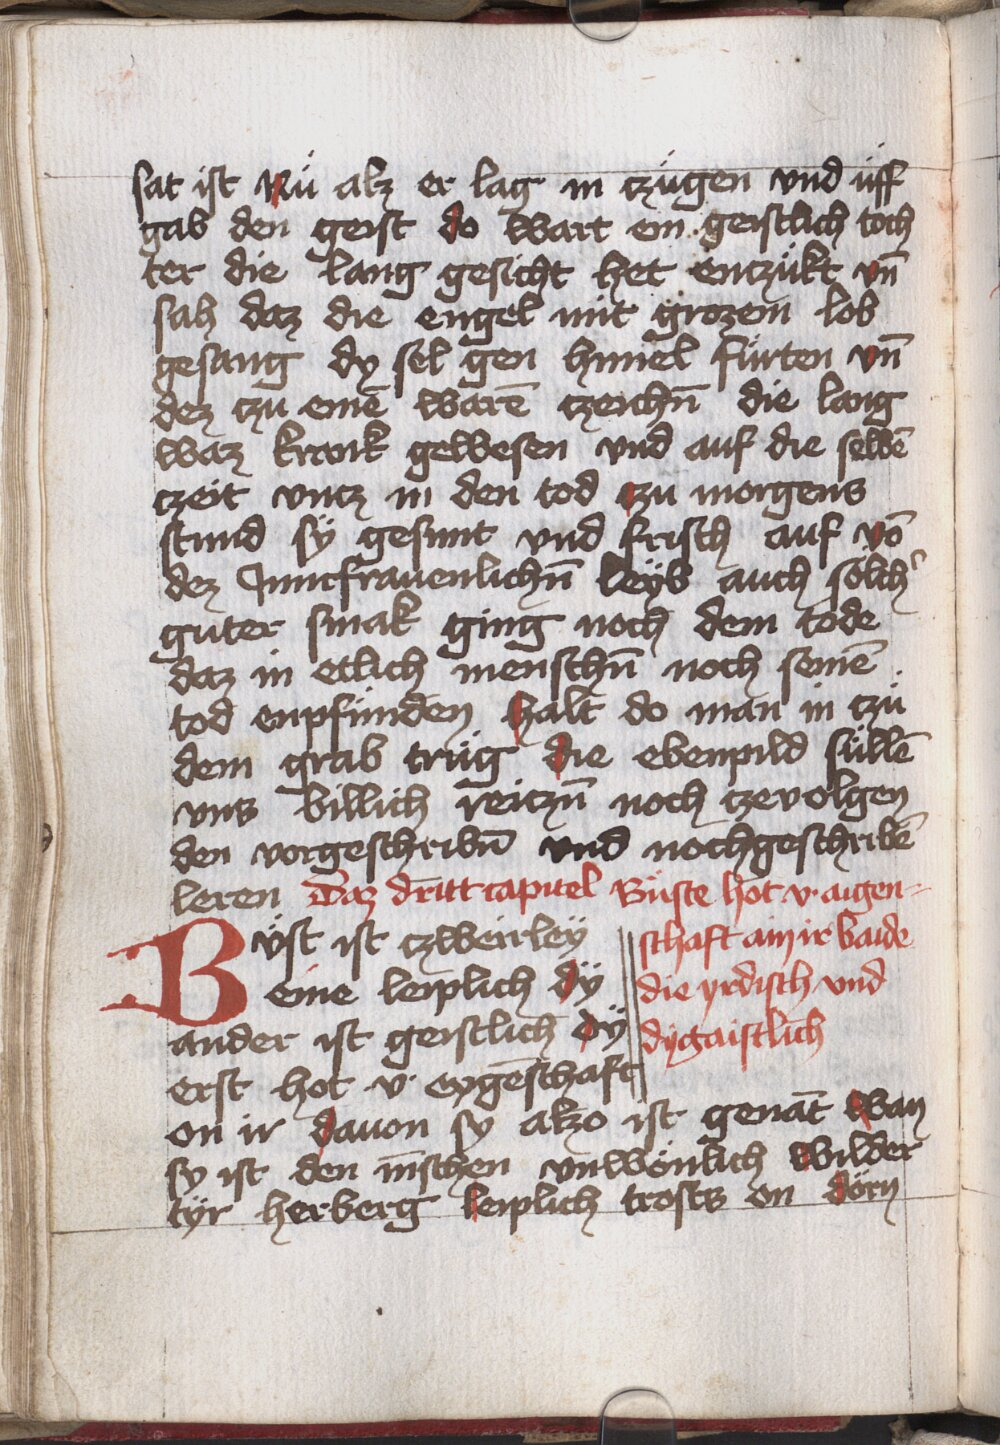 sat ist Nü alz er lag in czügen vnd üff
gab den geist do wart ein geistlich toch
ter die lang gesicht het enczükt vn̄
sah daz die engel mit grozem lob
gesang dy sel gen himel fürten vn̄
dez czu einē warē czeichn̄ die lang
waz krank gewesen vnd auf die selbē
czeit vntz in den tod czu morgens
stund sÿ gesunt vnd frisch auf vō
dez Junckfrauenlichn̄ leÿb auch sölch
guter smak ging noch dem tode
daz in etlich menschn̄ noch seinē
tod enpfünden halt do man in czü
dem grab trüg die ebenpild süllē
vns billich reiczn̄ noch czevolgen
den vorgeschribn̄ vnd nochgeschribē
leren Daz dritt capitel Büste hot v aigen-
schaft an ir baide
die yrdisch vnd
dy gaistlich
Büst ist czweirleÿ
eine leiplich dÿ
ander ist geistlich dÿ
erst hot v eygēschaft
on ir davon sy alzo ist genāt Wan
sy ist den m̄schen vnwönlich Wilder
tÿr herberg leiplich trosts on dörn